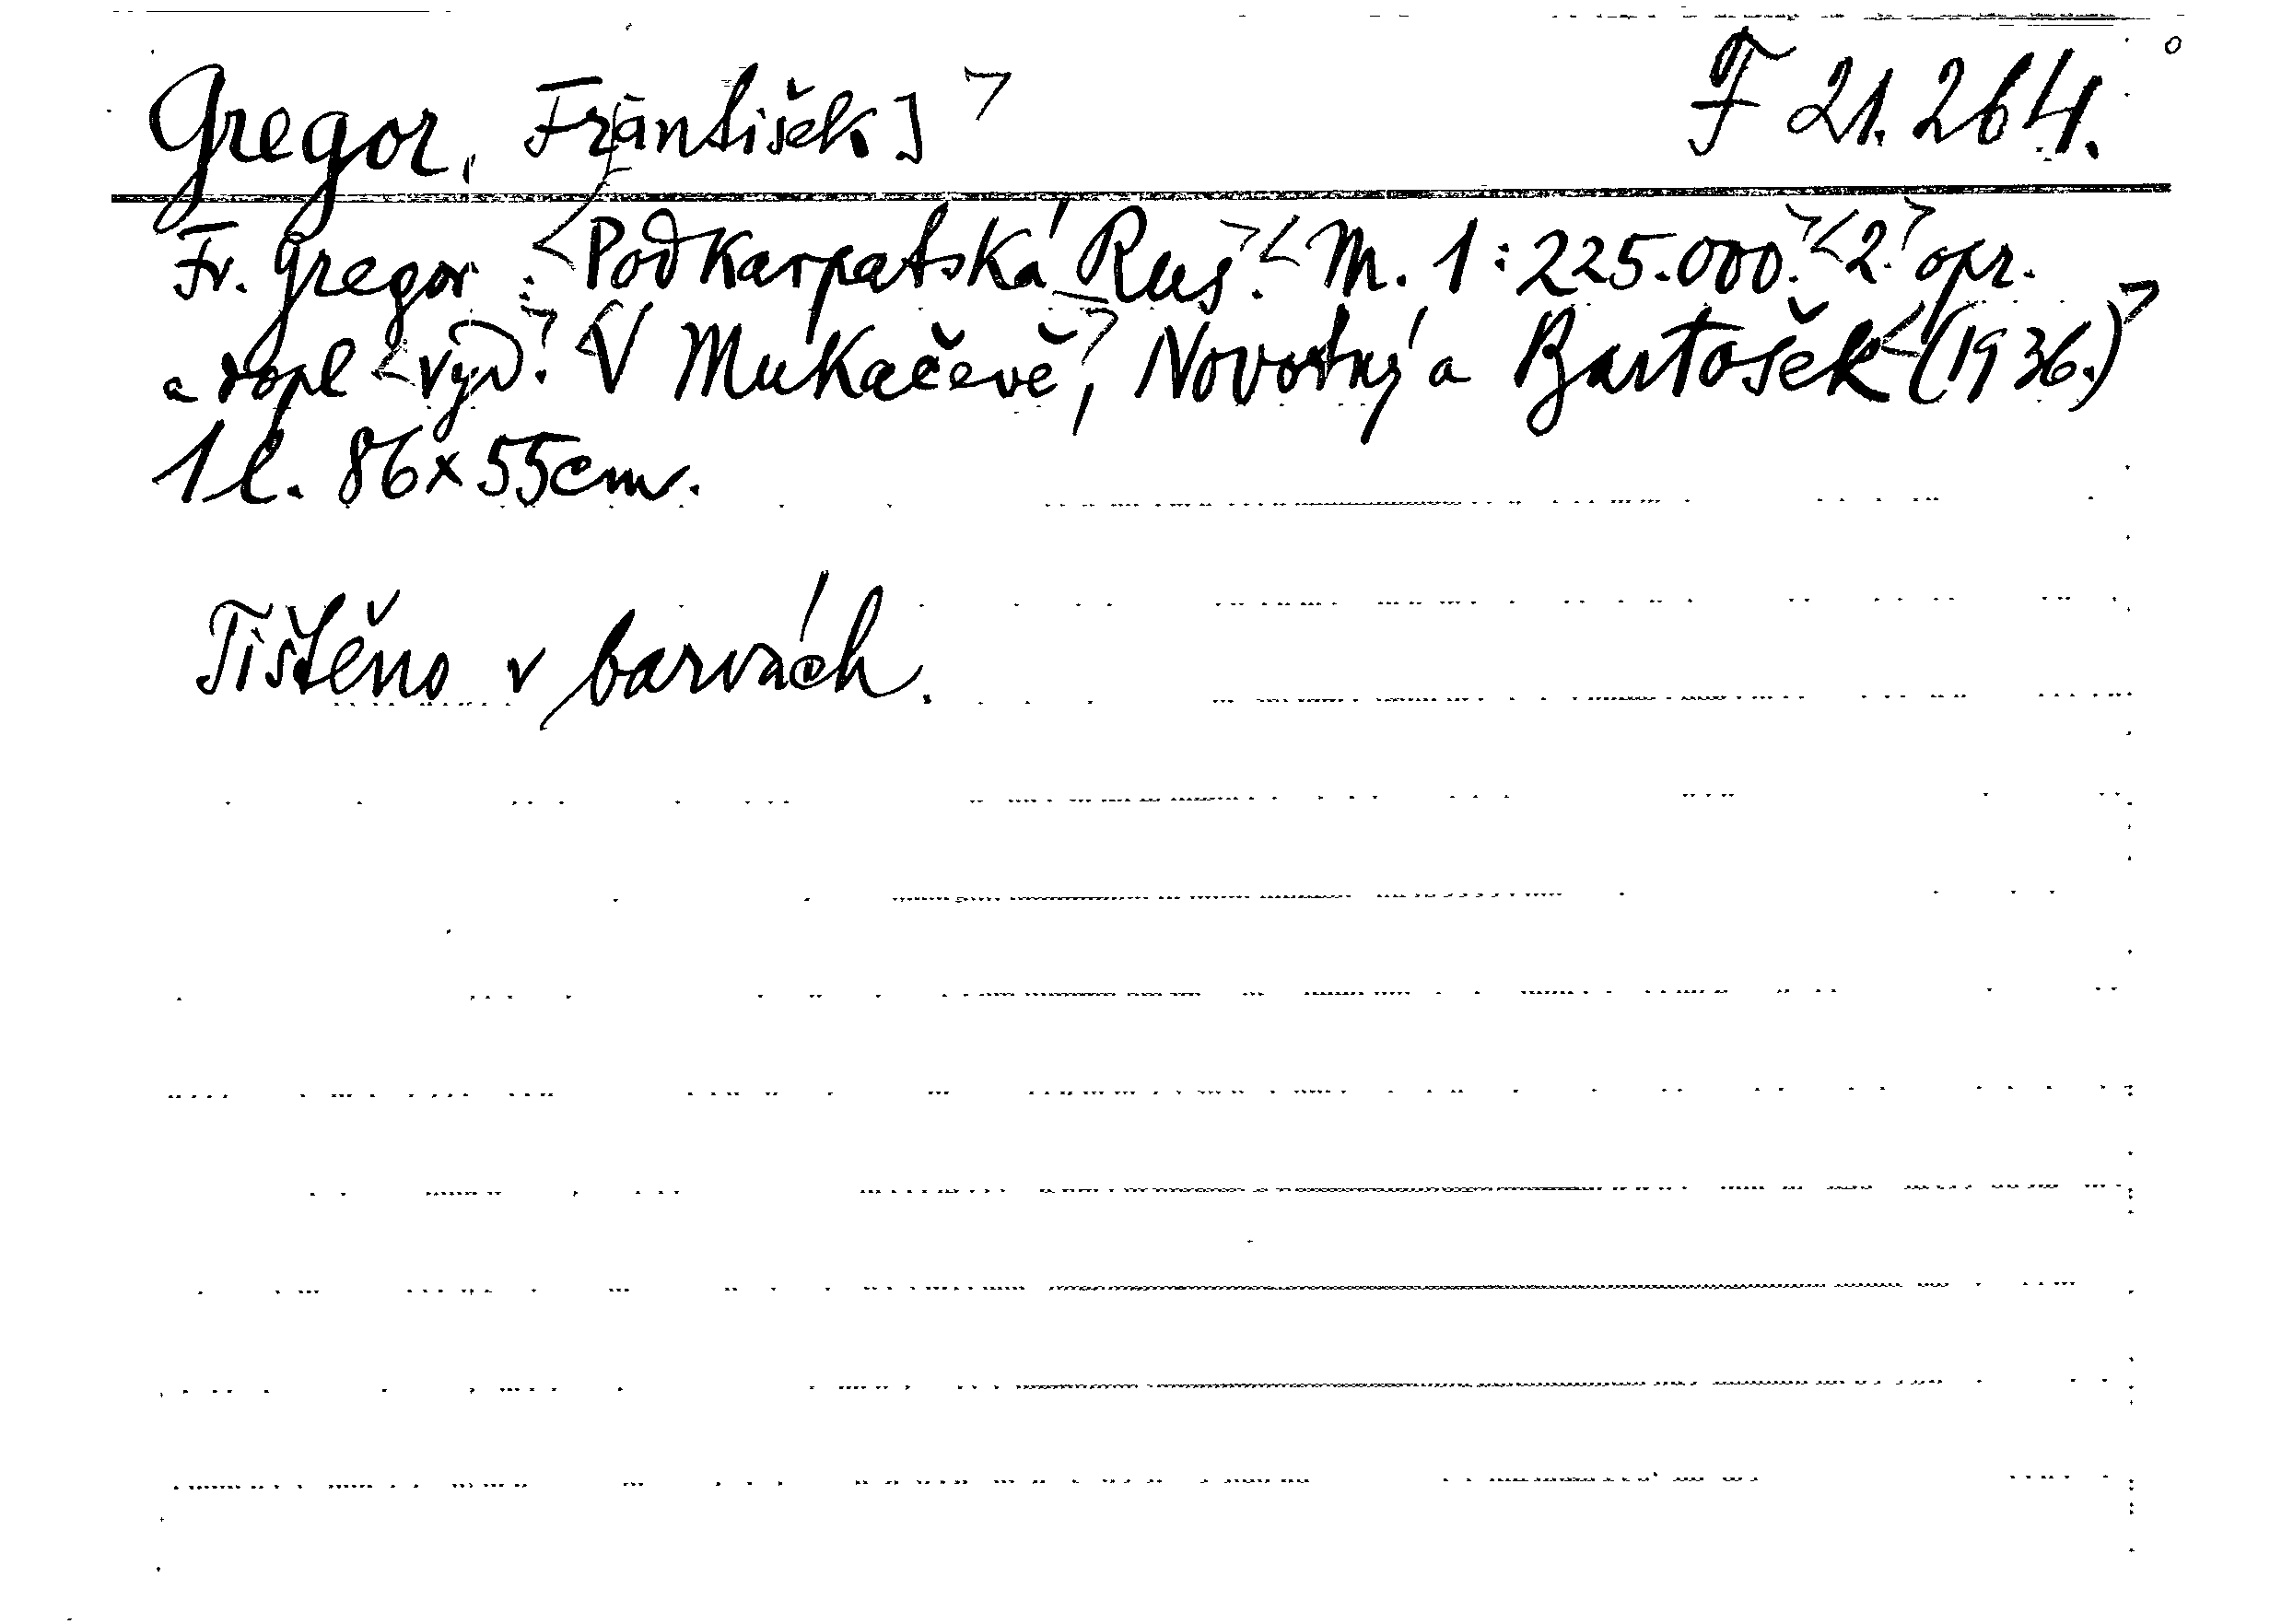 Gregor, František] F 21.264.
Fr. Gregor: Podkarpatská Rus. M. 1:225.000. 2. opr.
a dopl vyd. V Mukačevě, Novotný a Bartošek (1936.)
1 l. 86x55cm.
Tištěno v barvách.